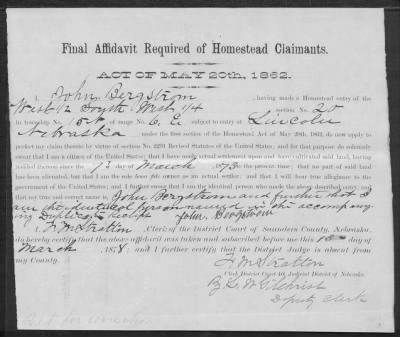 Final Affidavit Required of Homestead Claimants.
ACT OF MAY 20th, 1862.
I, John Bergstrom, having made a Homestead entry of the
West 1/2 South West 1/4 section No. 20
in township No. 15 N of range No. 6 E subject to entry at Lincoln
Nebraska under the first section of the Homestead Act of May 20th, 1862, do now apply to
perfect my claim thereto by virtue of section No. 2291 Revised Statutes of the United States; and for that purpose do solemnly
swear that I am a citizen of the United States; that I have made actual settlement upon and have cultivated said land, having
resided thereon since the day of March 1873 to the present time; that no part of said
land has been alienated, but that I am the sole bona fide owner as an actual settler; and that I will bear true allegiance to the
government of the United States; and I further swear that I am the identical person who made the above described entry, and
that my true and correct name is John Bergstrom and further that I
am the identical person named in the accompany
ing Duplicate Receipt John Bergstrom
I, F M Stratton, Clerk of the District Court of Saunders County, Nebraska,
do hereby certify that the above affidavit was taken and subscribed before me this day of
March 1878; and I further certify that the District Judge is absent from
my County.
F M Stratton
Clerk District Court Judicial District of Nebraska.
By W Gilchrist
Deputy Clerk